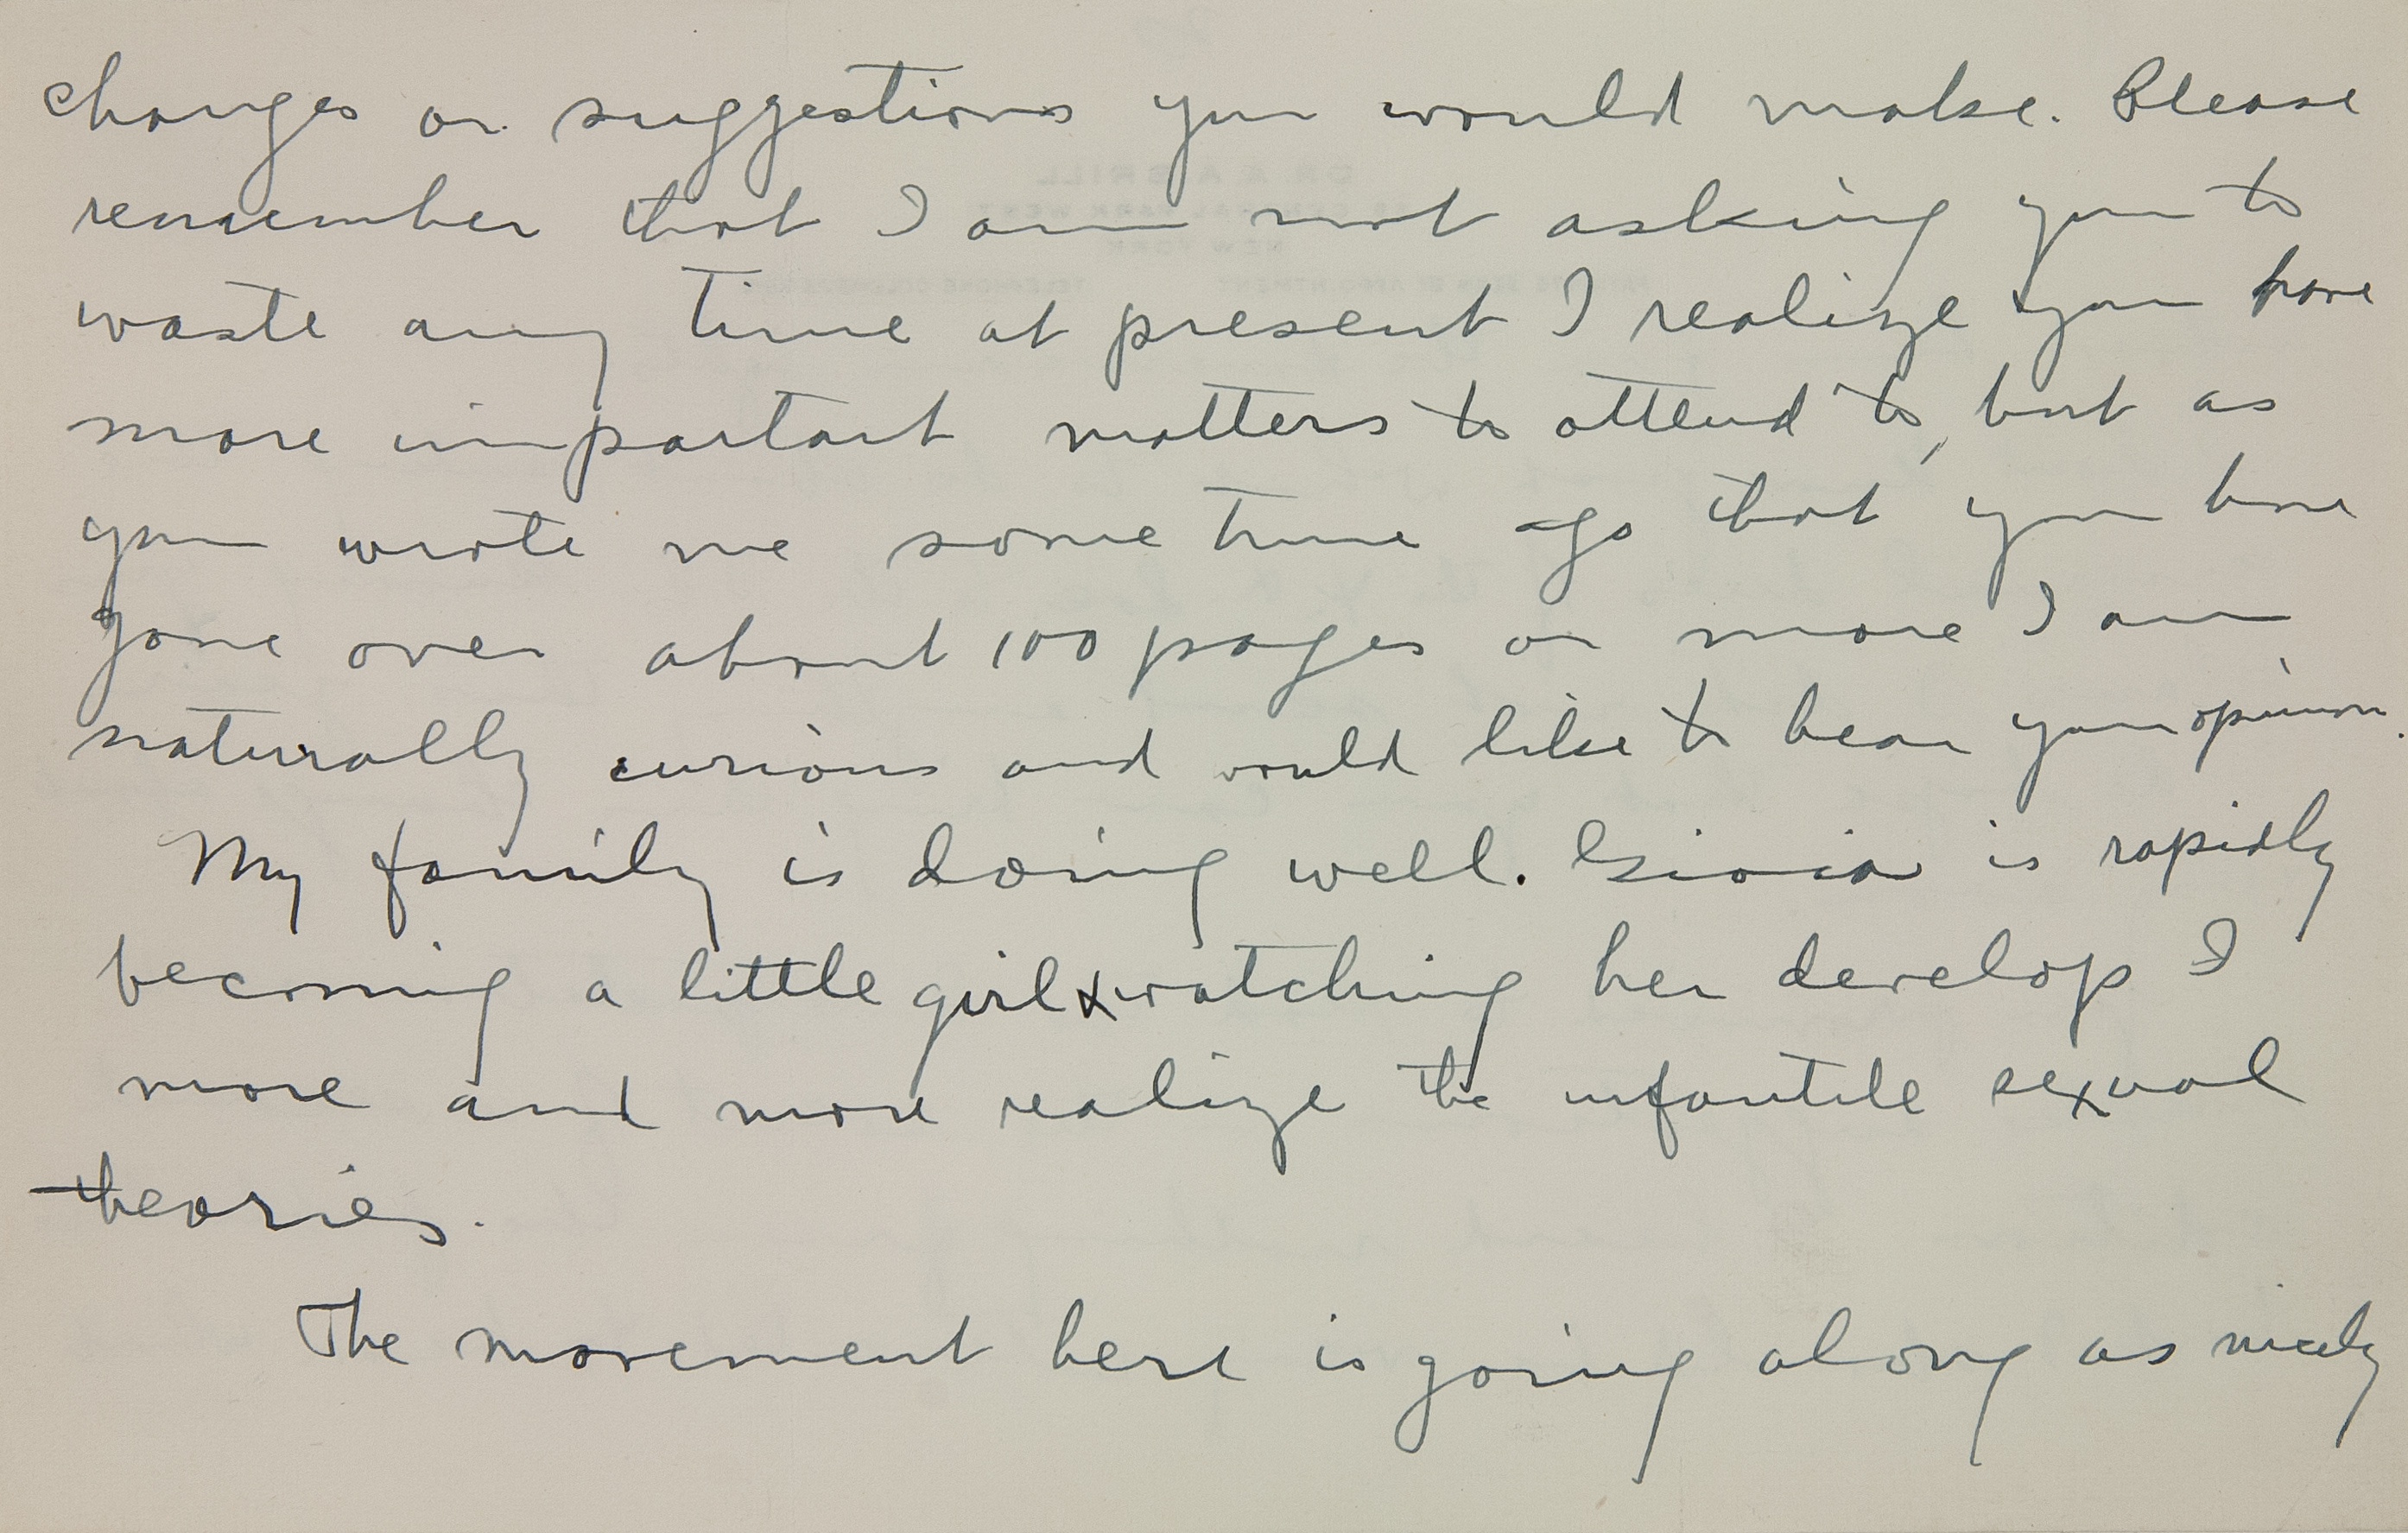 changes or suggestions you would make. Please
remember that I am not asking you to
waste any time at present I realize you have
more important matters to attend to, but as
you wrote me some time ago that you have
gone over about 100 pages or more I am
naturally curious and would like to hear your opinion.
My family is doing well. Gioia is rapidly
becoming a little girl & watching her develop I
more and more realize the infantile sexual
theories.
The movement here is going along as nicely